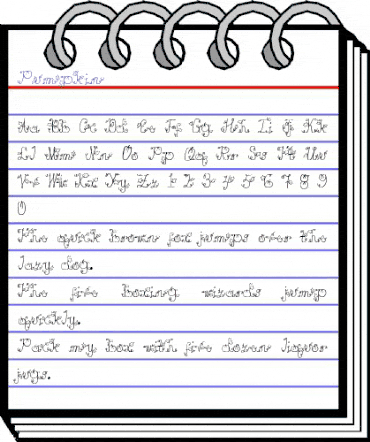 Pumpkin
Aa Bb Cc Dd Ee Ff Gg Hh Ii Jj Kk
Ll Mm Nn Oo Pp Qq Rr Ss Tt Uu
Vv Ww Xx Yy Zz 1 2 3 4 5 6 7 8 9
0
The quick brown fox jumps over the
lazy dog.
The five boxing wizards jump
quickly.
Pack my box with five dozen liquor
jugs.